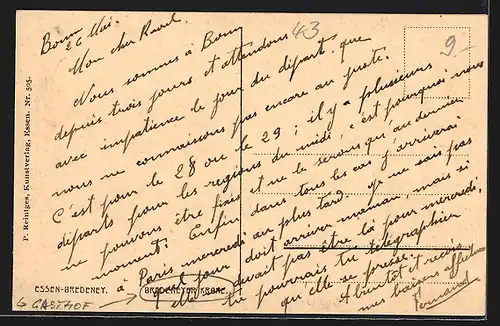 Bonn
26 Mai.
Mon cher Raoul.
Nous sommes à Bonn
depuis trois jours et attendons
avec impatience le jour du départ que
nous ne connaissons pas encore au juste.
C'est pour le 28 ou le 29 ; il y a plusieurs
départs pour les regions du midi, c'est pourquoi nous
ne pouvons être fixés et ne le serons qu'au dernier
moment. Enfin dans tous les cas j'arriverai
à Paris mercredi au plus tard. Je ne sais pas
quel jour doit arriver maman, mais si
elle devait pas être là pour mercredi,
tu pourrais tu telegraphier
qu'elle se presse.
A bientôt et reçois
mes baisers affectueux
Fernand
43
9-
P. Reintges, Kunstverlag, Essen. Nr. 595.
ESSEN-BREDENEY.
BREDENEYER KRONE.
GASTHOF